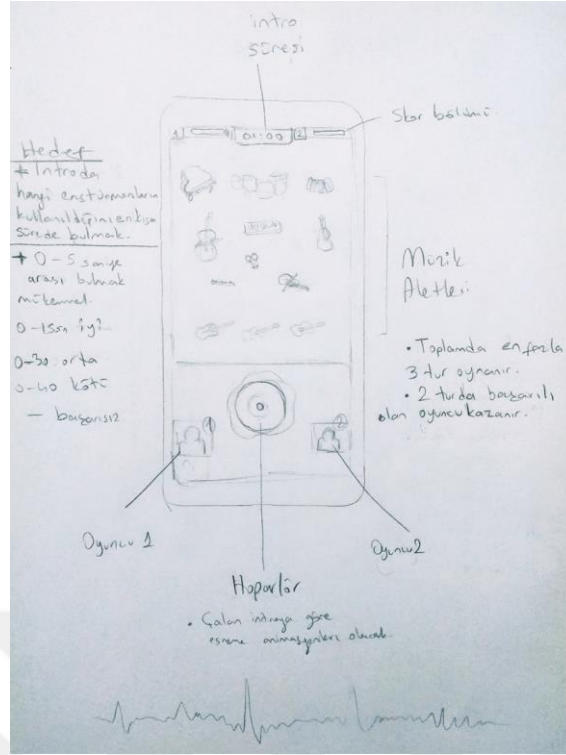 intro
süresi
1
01:00
2
Skor bölümü
Hedef
* Introda
hangi enstürmanların
kullanıldığını en kısa
sürede bulmak.
* 0-5 saniye
arası bulmak
mükemmel.
0-15sn iyi
0-30 orta
0-40 kötü
— başarısız
Müzik
Aletleri
• Toplamda en fazla
3 tur oynanır.
• 2 turda başarılı
olan oyuncu kazanır.
Oyuncu 1
Oyuncu2
Hoparlör
• Çalan introya göre
esneme animasyonları olacak.